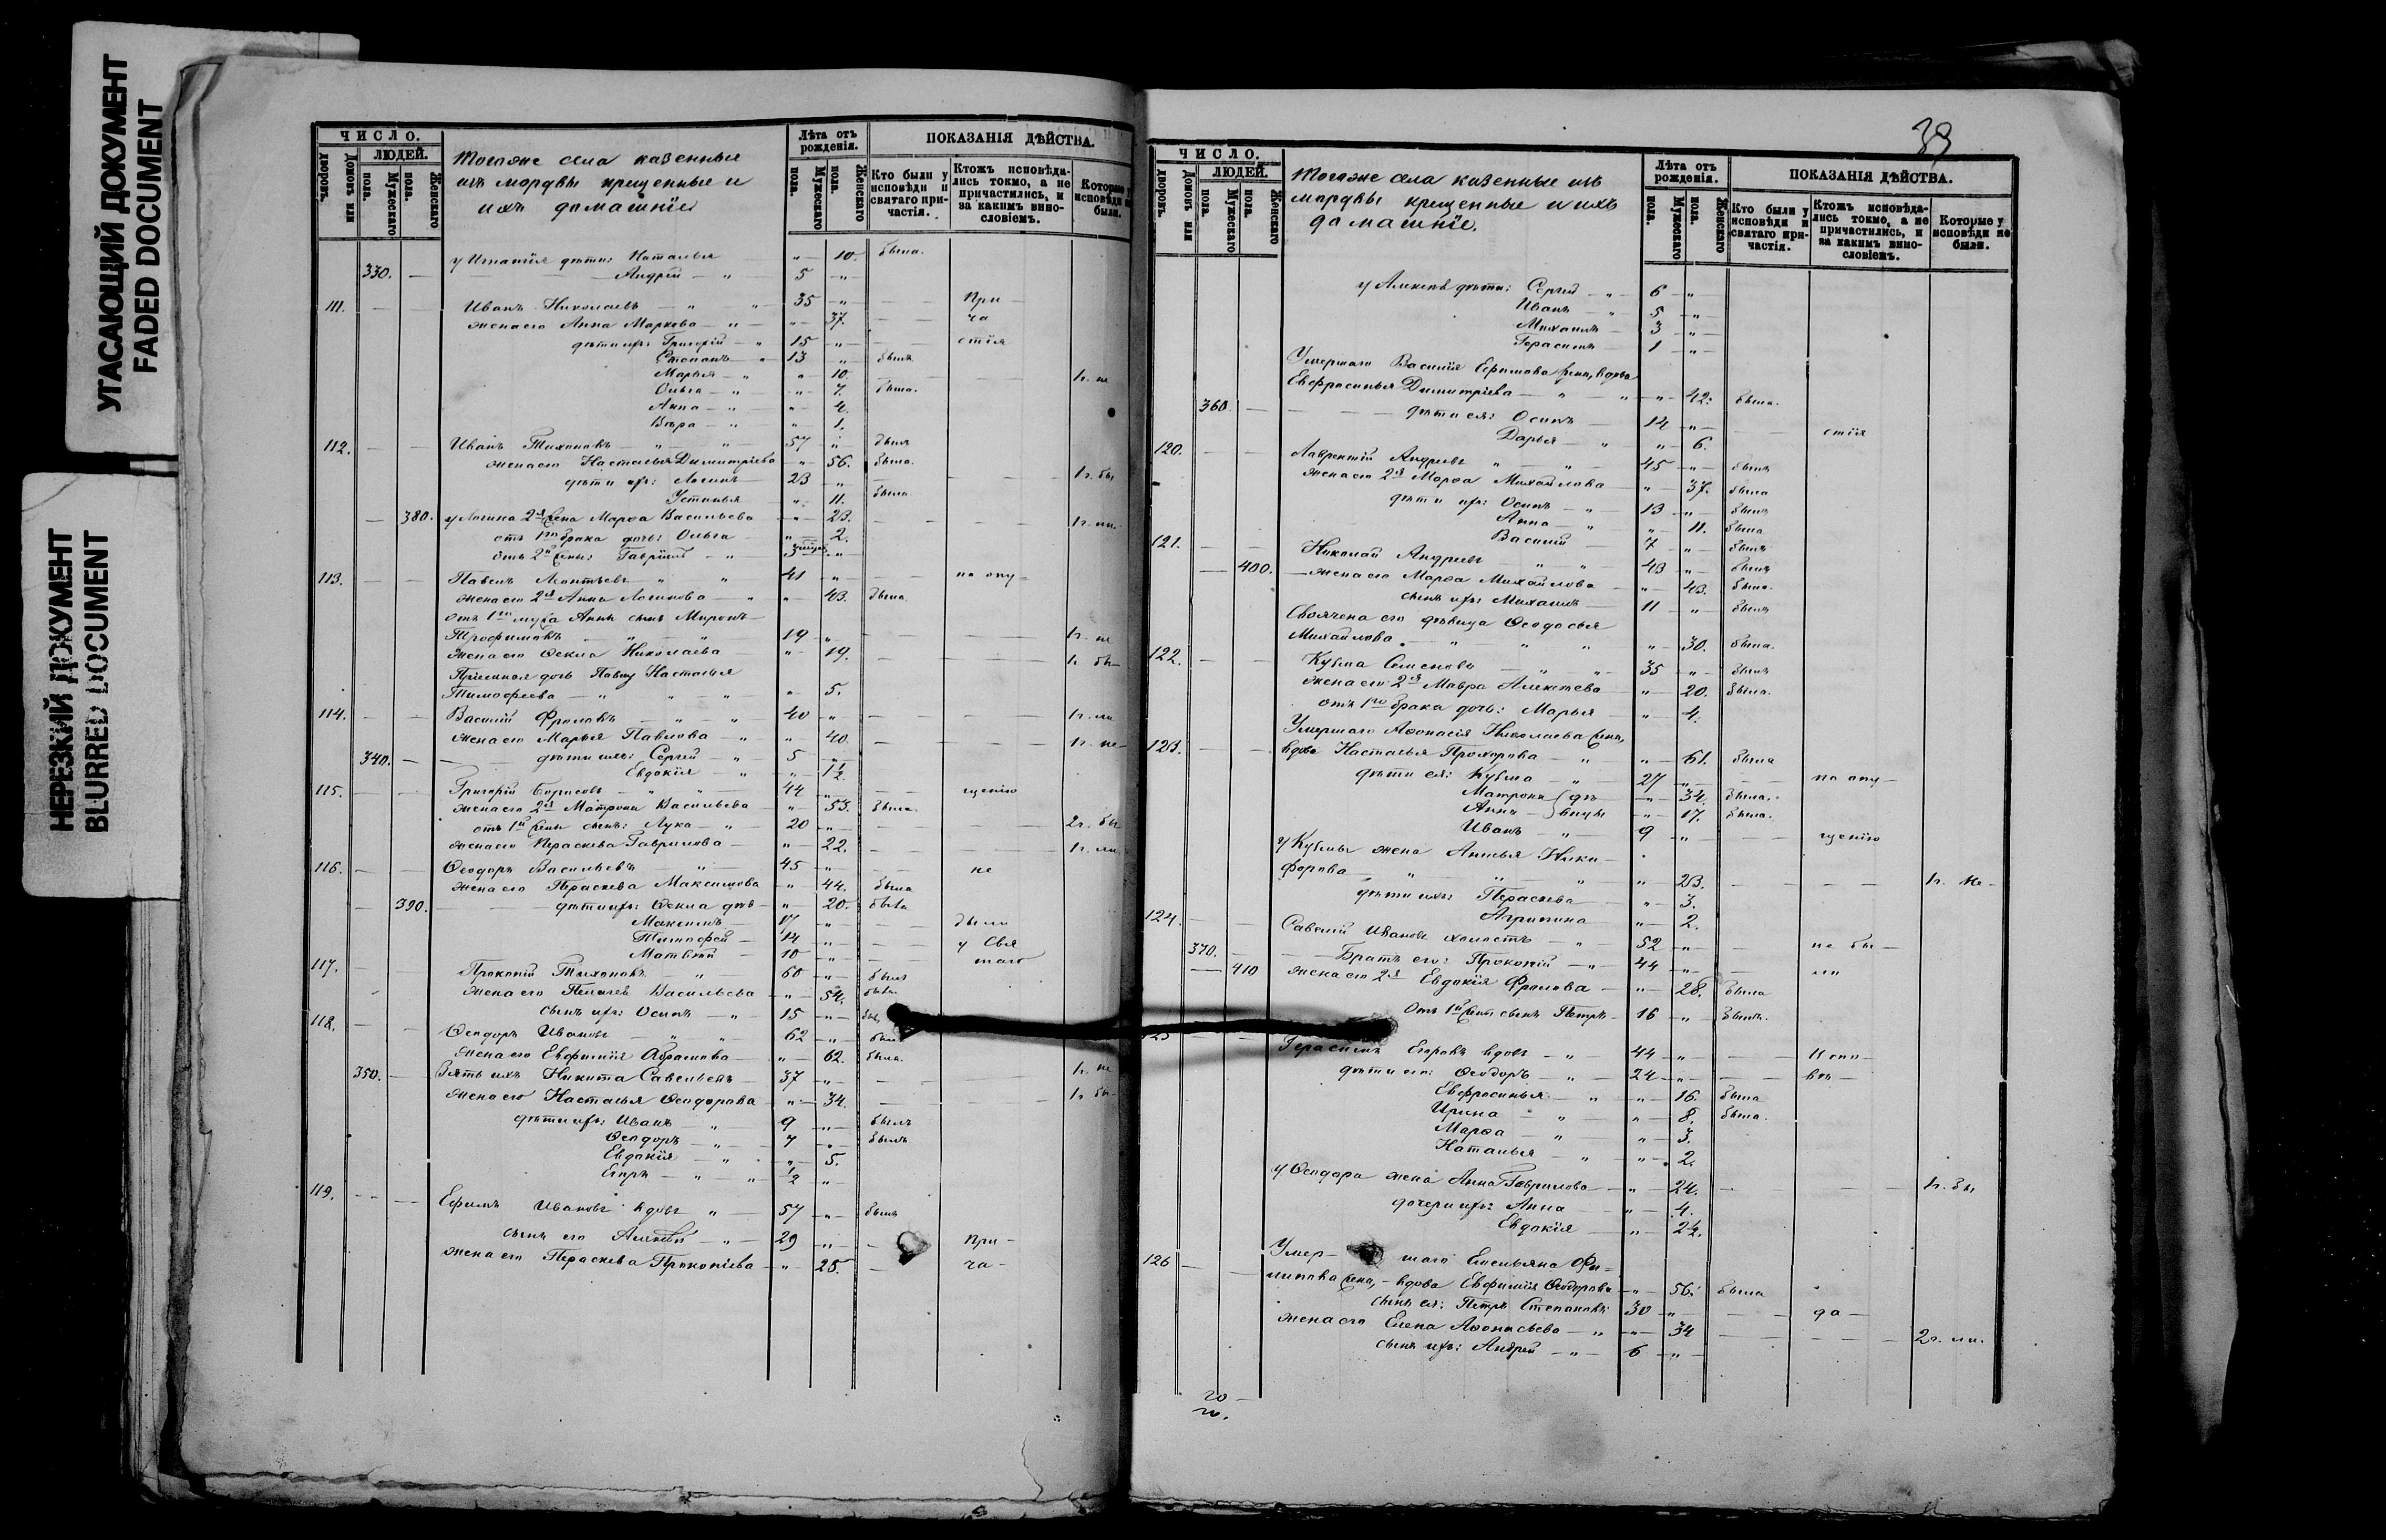 УГАСАЮЩИЙ ДОКУМЕНТ
FADED DOCUMENT
НЕРЕЗКИЙ ДОКУМЕНТ
BLURRED DOCUMENT
ЧИСЛО.
ЛЮДЕЙ.
Домовъ или дворовъ.
Мужескаго пола.
Женскаго пола.
Тогоже села казенные
изъ мордвы крещенные и
ихъ домашніе
Лѣта отъ рожденія.
Мужескаго пола.
Женскаго пола.
ПОКАЗАНІЯ ДѢЙСТВА.
Кто были у исповѣди и святаго причастія.
Ктожъ исповѣдались токмо, а не причастились, и за какимъ винословіемъ.
Которые у исповѣди не были.
у Игнатія дѣти: Наталья " 10. была.
330. Андрей " 5 "
111. Иванъ Николаевъ " " 35 " При
жена его Анна Маркова " " 37. ча
дѣти ихъ: Григорій " 15 " стія
Степанъ " 13 " былъ
Марья " " 10. 1 г. не
Ольга " " 7. была.
Анна " " 4.
Вѣра " " 1.
112. Иванъ Тихоновъ " " 57 " былъ
жена его Наталья Димитріева " 56. была.
дѣти ихъ: Логинъ 23 " 1 г. бы
Устинья " 11. была
380. у Логина 2я жена Марѳа Васильева " 23.
отъ 1го брака дочь: Ольга " 2.
отъ 2й жены: Гавріилъ "
113. Павелъ Леонтьевъ " " 41 " по опу-
жена его 2я Анна Логинова " " 43. была.
отъ 1го мужа Анны сынъ Миронъ
Трофимовъ " " 19 " 1 г. не
жена его Ѳекла Николаева " 19. 1 г. бы
Пріемная дочь Павлу Наталья
Тимофеева " " " " 5.
114. Василій Фроловъ " " 40 " 1 г. ли
жена его Марья Павлова " " 40. 1 г. не
340. дѣти ихъ: Сергей " 5 "
Евдокія " " 1½.
115. Григорій Борисовъ " " 44 " щенію
жена его 2я Матрона Васильева " 53. была.
отъ 1й жены сынъ: Лука " 20 " 2 г. бы
жена его Параскева Гаврилова " 22. 1 г. ли
116. Ѳеодоръ Васильевъ " 45 " не
жена его Параскева Максимова " 44. была
390. дѣти ихъ: Ѳекла дѣв " 20. была
Максимъ 17 " было
Тимофей 14 " у Свя
Матвѣй 10 " таго
117. Прокопій Тихоновъ " 60 " былъ
жена его Пелагея Васильева " 54. была
сынъ ихъ: Осипъ " 15 "
118. Ѳеодоръ Ивановъ " " 62 " былъ
жена его Евфимія Абрамова " 62. была.
350. Зять ихъ Никита Савельевъ 37 " 1 г. не
жена его Наталья Ѳеодорова " 34. 1 г. бы
дѣти ихъ: Иванъ " 9 " былъ
Ѳеодоръ " 7 " былъ
Евдокія " " 5.
Егоръ " " ½ "
119. Ефимъ Ивановъ вдовъ " 57 " былъ
сынъ его Алексѣй " 29 " При-
жена его Параскева Прокопіева " 25. ча-
39
ЧИСЛО.
ЛЮДЕЙ.
Домовъ или дворовъ.
Мужескаго пола.
Женскаго пола.
Тогоже села казенные изъ
мордвы крещенные и ихъ
домашніе.
Лѣта отъ рожденія.
Мужескаго пола.
Женскаго пола.
ПОКАЗАНІЯ ДѢЙСТВА.
Кто были у исповѣди и святаго причастія.
Ктожъ исповѣдались токмо, а не причастились, и за каким вино-словіемъ.
Которые у исповѣди не были.
у Алексѣя дѣти: Сергей " 6 "
Иванъ " 5 "
Михаилъ 3 "
Герасимъ 1 "
Умершаго Василія Ефимова жена, вдова
Евфросинья Димитріева " " " 42. была.
360 дѣти ея: Осипъ 14 " стія
Дарья " " 6.
120. Лаврентій Андреевъ " " 45 " былъ
жена его 2я Марѳа Михайлова " 37. была
дѣти ихъ: Осипъ " 13 " былъ
Анна " " 11. была
Василій 7 " былъ
121. Николай Андреевъ " " 43 " былъ
400. жена его Марѳа Михайлова " 43. была.
сынъ ихъ: Михаилъ 11 " былъ
Своячена его дѣвица Ѳеодосья
Михайлова " " " " 30. была.
122. Кузма Семеновъ " " 35 " былъ
жена его 2я Мавра Алексѣева " 20. была.
отъ 1го брака дочь: Марья " 4.
Умершаго Аѳонасія Николаева жена,
123. вдова Наталья Прохорова " " 61. была
дѣти ея: Кузма " 27 " по опу-
Матрона дѣ- " 34. была.
Анна вицы " 17. была.
Иванъ " 9 " щенію
у Кузмы жена Анисья Ники-
форова " " " " 23. 1 г. не-
дѣти ихъ: Параскева " 3.
Агрипина " 2.
124. Савелій Ивановъ холостъ " 52 " не бы-
370. Братъ его: Прокопій " 44 " ли
410 жена его 2я Евдокія Фролова " 28. была
отъ 1й жены сынъ Петръ 16 " былъ.
125 Герасимъ Егоровъ вдовъ " 44 "
дѣти его: Ѳеодоръ " 24 "
Евфросинья " " 16. была
Ирина " " 8. была.
Марѳа " " 3.
Наталья " " 2.
у Ѳеодора жена Анна Гаврилова " 24. 1 г. бы
дочери ихъ: Анна " 4.
Евдокія "
126 Умер- шаго Емельяна Фи-
липова жена, вдова Евфимія Ѳеодорова " 56. была
сынъ ея: Петръ Степановъ 30 " да-
жена его Елена Аѳонасьева " " 34 2 г. ли.
сынъ ихъ: Андрей " 6 "
20